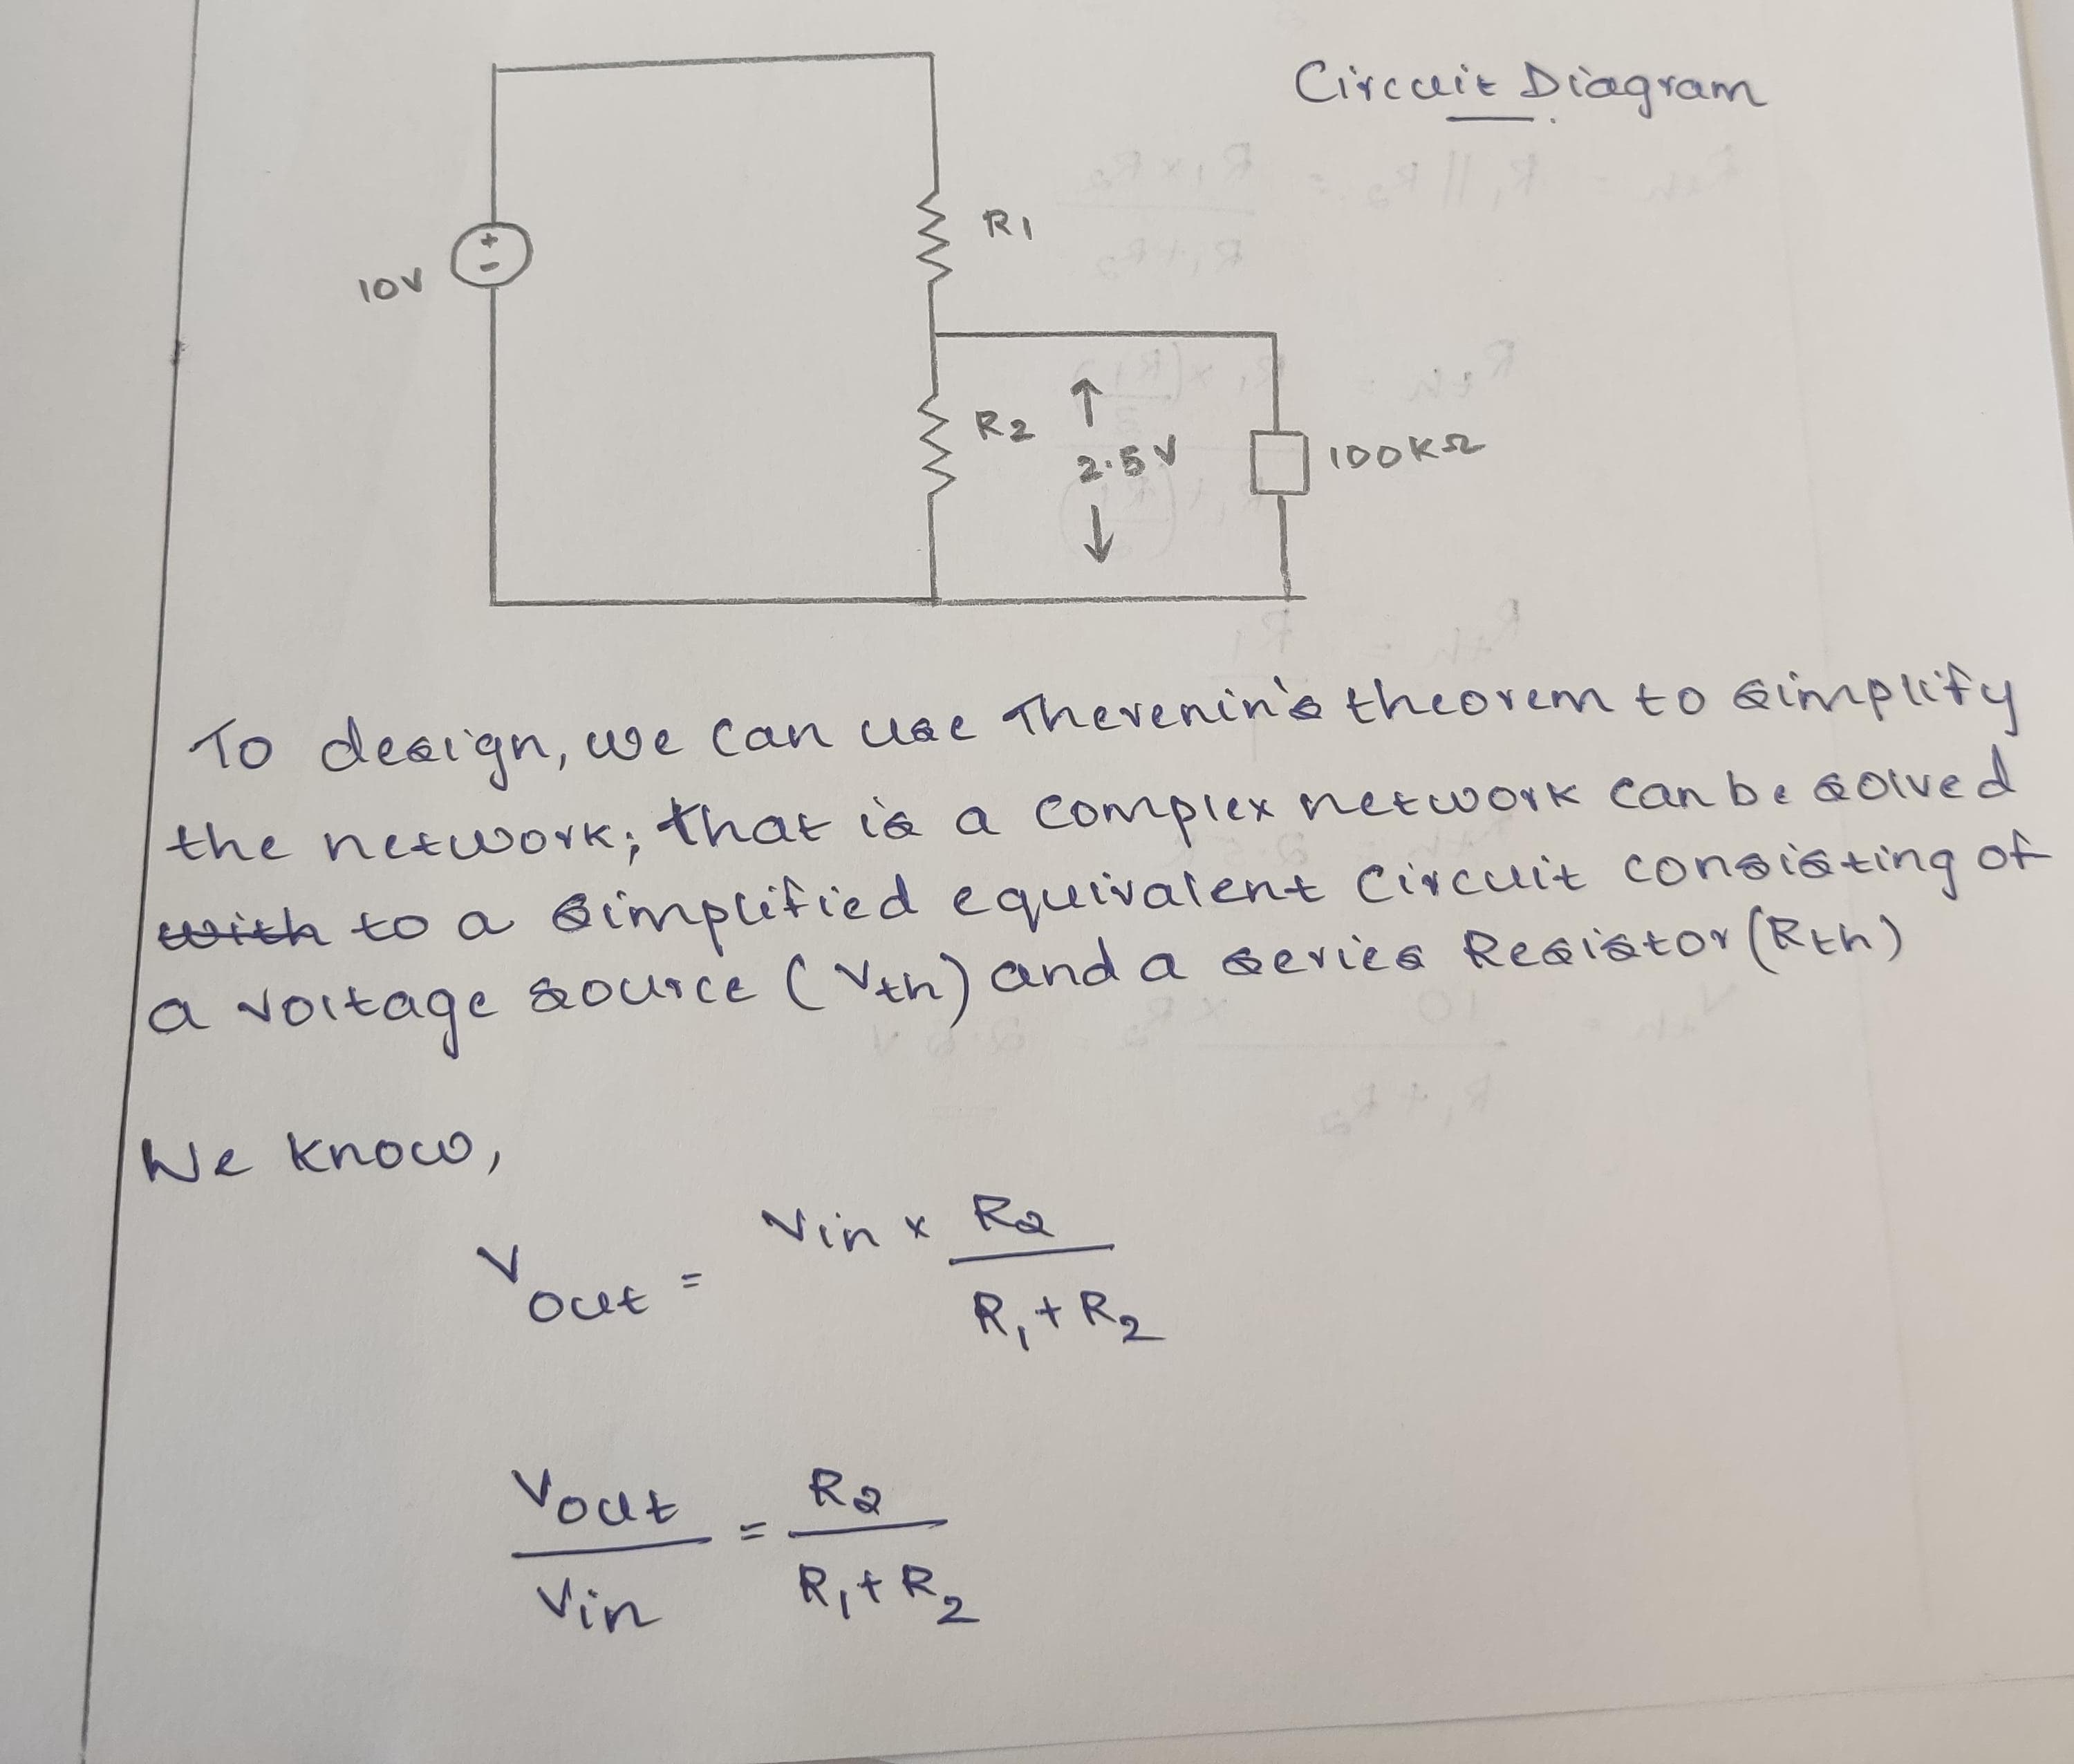 Circuit Diagram
10V
+
-
R1
R2
↑
2.5V
↓
100KΩ
To design, we can use Thevenin's theorem to simplify
the network; that is a complex network can be solved
with to a simplified equivalent circuit consisting of
a voltage source (Vth) and a series Resistor (Rth)
We know,
Vout = Vin x R2
R1 + R2
Vout = R2
Vin R1 + R2